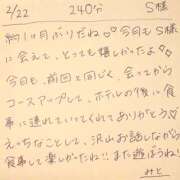 2/22 240分 S様
約1ヶ月ぶりだね♡今日もS様
に会えて、とっても嬉しかったよ♡
今日も、前回と同じく、会ってから
コースアップして、ホテルの後に食
事に連れていってくれてありがとう♡
えっちなことして、沢山お話しながら
食事して楽しかったね!!また遊ぼうね!
みと